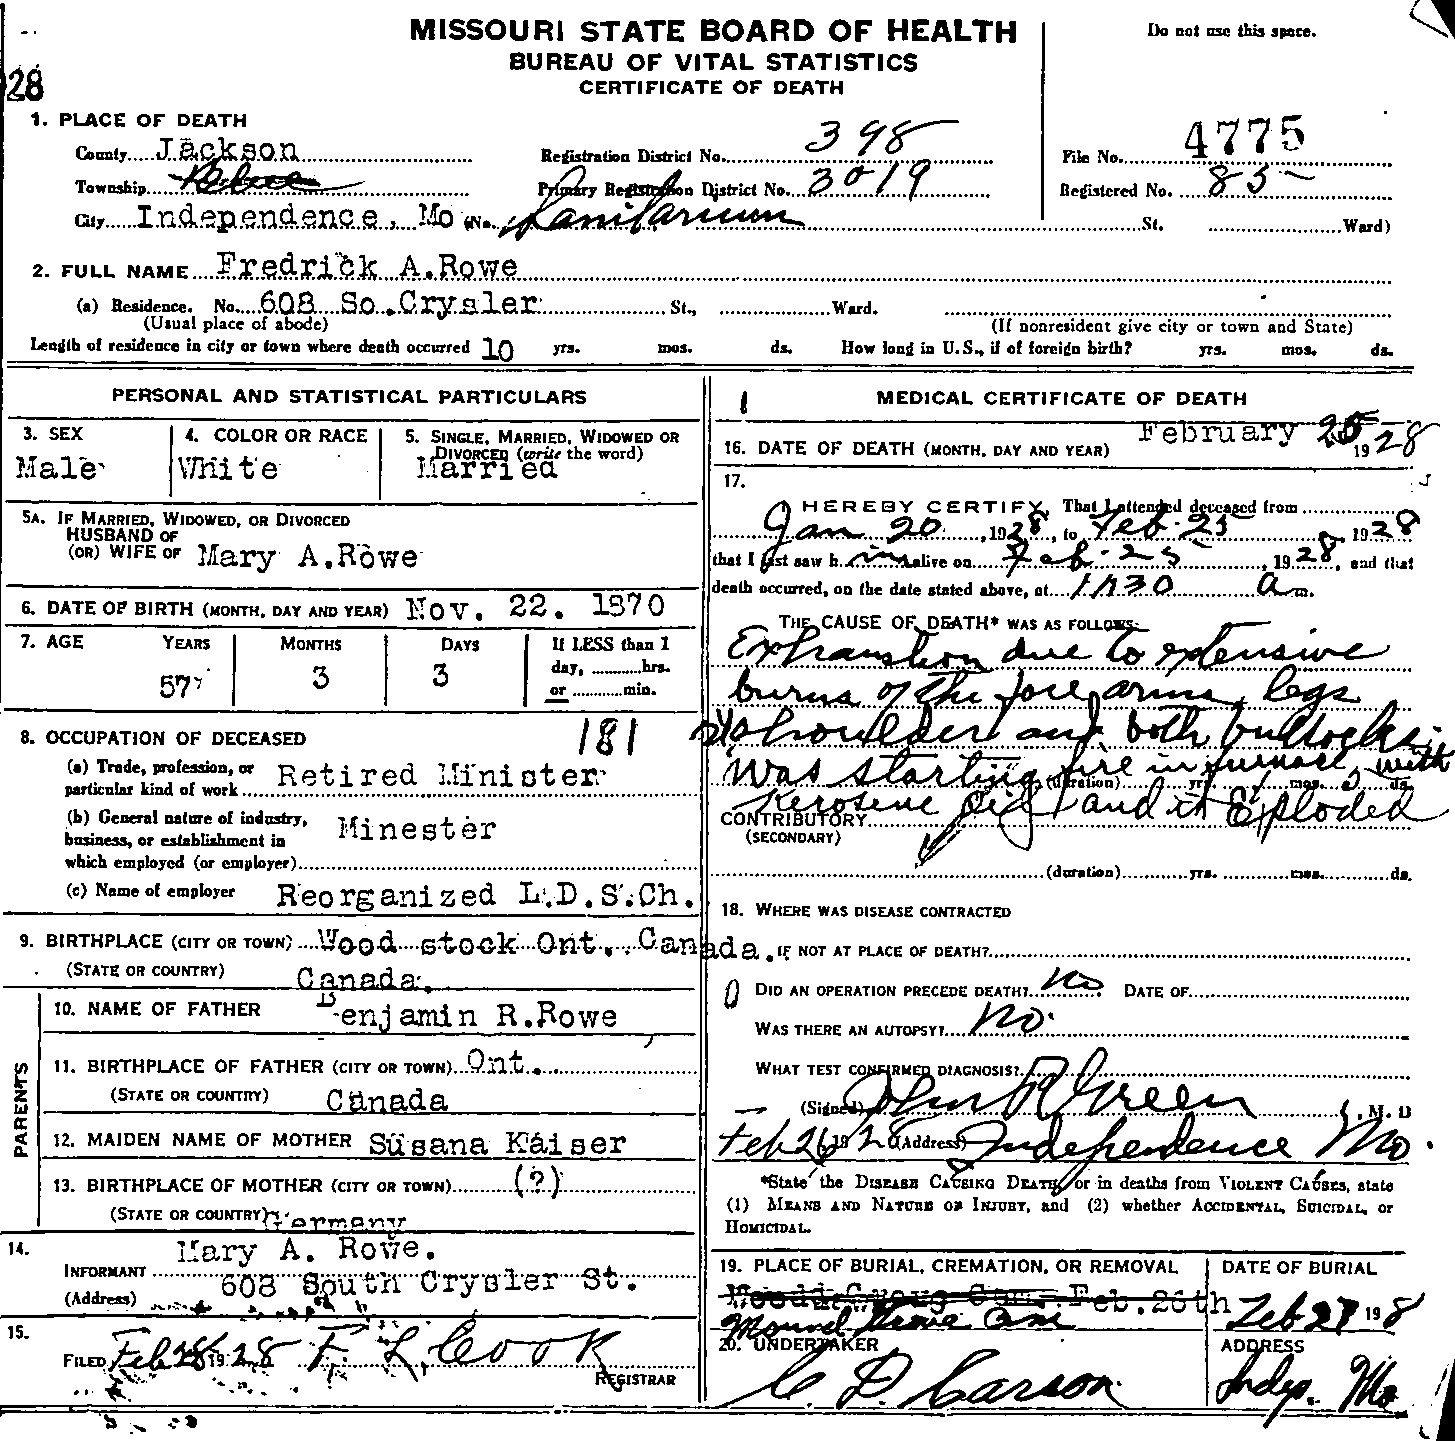 MISSOURI STATE BOARD OF HEALTH
BUREAU OF VITAL STATISTICS
CERTIFICATE OF DEATH
Do not use this space.
28
1. PLACE OF DEATH
County Jackson Registration District No. 398 File No. 4775
Township Blue Primary Registration District No. 3019 Registered No. 85
City Independence, Mo (No. Sanitarium St. Ward)
2. FULL NAME Fredrick A. Rowe
(a) Residence. No. 608 So. Crysler St., Ward.
(Usual place of abode) (If nonresident give city or town and State)
Length of residence in city or town where death occurred 10 yrs. mos. ds. How long in U.S., if of foreign birth? yrs. mos. ds.
PERSONAL AND STATISTICAL PARTICULARS
3. SEX 4. COLOR OR RACE 5. SINGLE, MARRIED, WIDOWED OR DIVORCED (write the word)
Male White Married
5A. IF MARRIED, WIDOWED, OR DIVORCED
HUSBAND OF
(OR) WIFE OF Mary A. Rowe
6. DATE OF BIRTH (MONTH, DAY AND YEAR) Nov. 22. 1870
7. AGE YEARS MONTHS DAYS If LESS than 1
day, hrs.
57 3 3 or min.
8. OCCUPATION OF DECEASED 181
(a) Trade, profession, or
particular kind of work Retired Minister
(b) General nature of industry,
business, or establishment in
which employed (or employer) Minester
(c) Name of employer Reorganized L.D.S.Ch.
9. BIRTHPLACE (CITY OR TOWN) Wood stock Ont. Canada.
(STATE OR COUNTRY) Canada.
PARENTS
10. NAME OF FATHER Benjamin R. Rowe
11. BIRTHPLACE OF FATHER (CITY OR TOWN) Ont.
(STATE OR COUNTRY) Canada
12. MAIDEN NAME OF MOTHER Susana Kaiser
13. BIRTHPLACE OF MOTHER (CITY OR TOWN) (?)
(STATE OR COUNTRY) Germany
14. Mary A. Rowe.
INFORMANT
(Address) 608 South Crysler St.
15.
FILED Feb 28 1928 F. L. Cook
REGISTRAR
1 MEDICAL CERTIFICATE OF DEATH
16. DATE OF DEATH (MONTH, DAY AND YEAR) February 25 1928
17.
I HEREBY CERTIFY, That I attended deceased from
Jan 20, 1928, to Feb. 25, 1928
that I last saw him alive on Feb. 25, 1928, and that
death occurred, on the date stated above, at 1130 a m.
THE CAUSE OF DEATH* WAS AS FOLLOWS:
Exhaustion due to extensive
burns of the fore arms, legs
shoulder and both buttocks
was starting fire in furnace with
(duration) yrs. mos. ds.
kerosene and it Exploded
CONTRIBUTORY
(SECONDARY)
(duration) yrs. mos. ds.
18. WHERE WAS DISEASE CONTRACTED
IF NOT AT PLACE OF DEATH?
0 DID AN OPERATION PRECEDE DEATH? No DATE OF
WAS THERE AN AUTOPSY? No.
WHAT TEST CONFIRMED DIAGNOSIS?
(Signed) John R Green, M. D
Feb 26, 19 (Address) Independence Mo.
*State the DISEASE CAUSING DEATH, or in deaths from VIOLENT CAUSES, state
(1) MEANS AND NATURE OF INJURY, and (2) whether ACCIDENTAL, SUICIDAL, or
HOMICIDAL.
19. PLACE OF BURIAL, CREMATION, OR REMOVAL DATE OF BURIAL
Feb. 26th
Mound Grove Cem Feb 27 1928
20. UNDERTAKER ADDRESS
C. D. Carson Indep. Mo